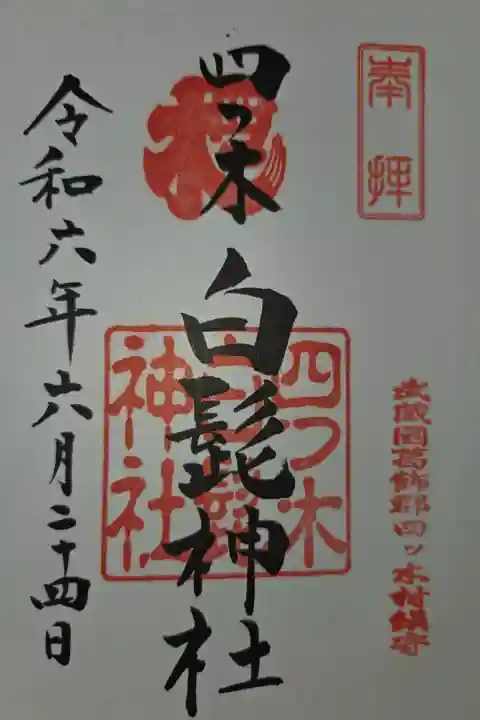 奉拝
武蔵国葛飾郡四ッ木村鎮守
四つ木
白髭神社
四つ木
白髭
神社
令和六年六月二十四日